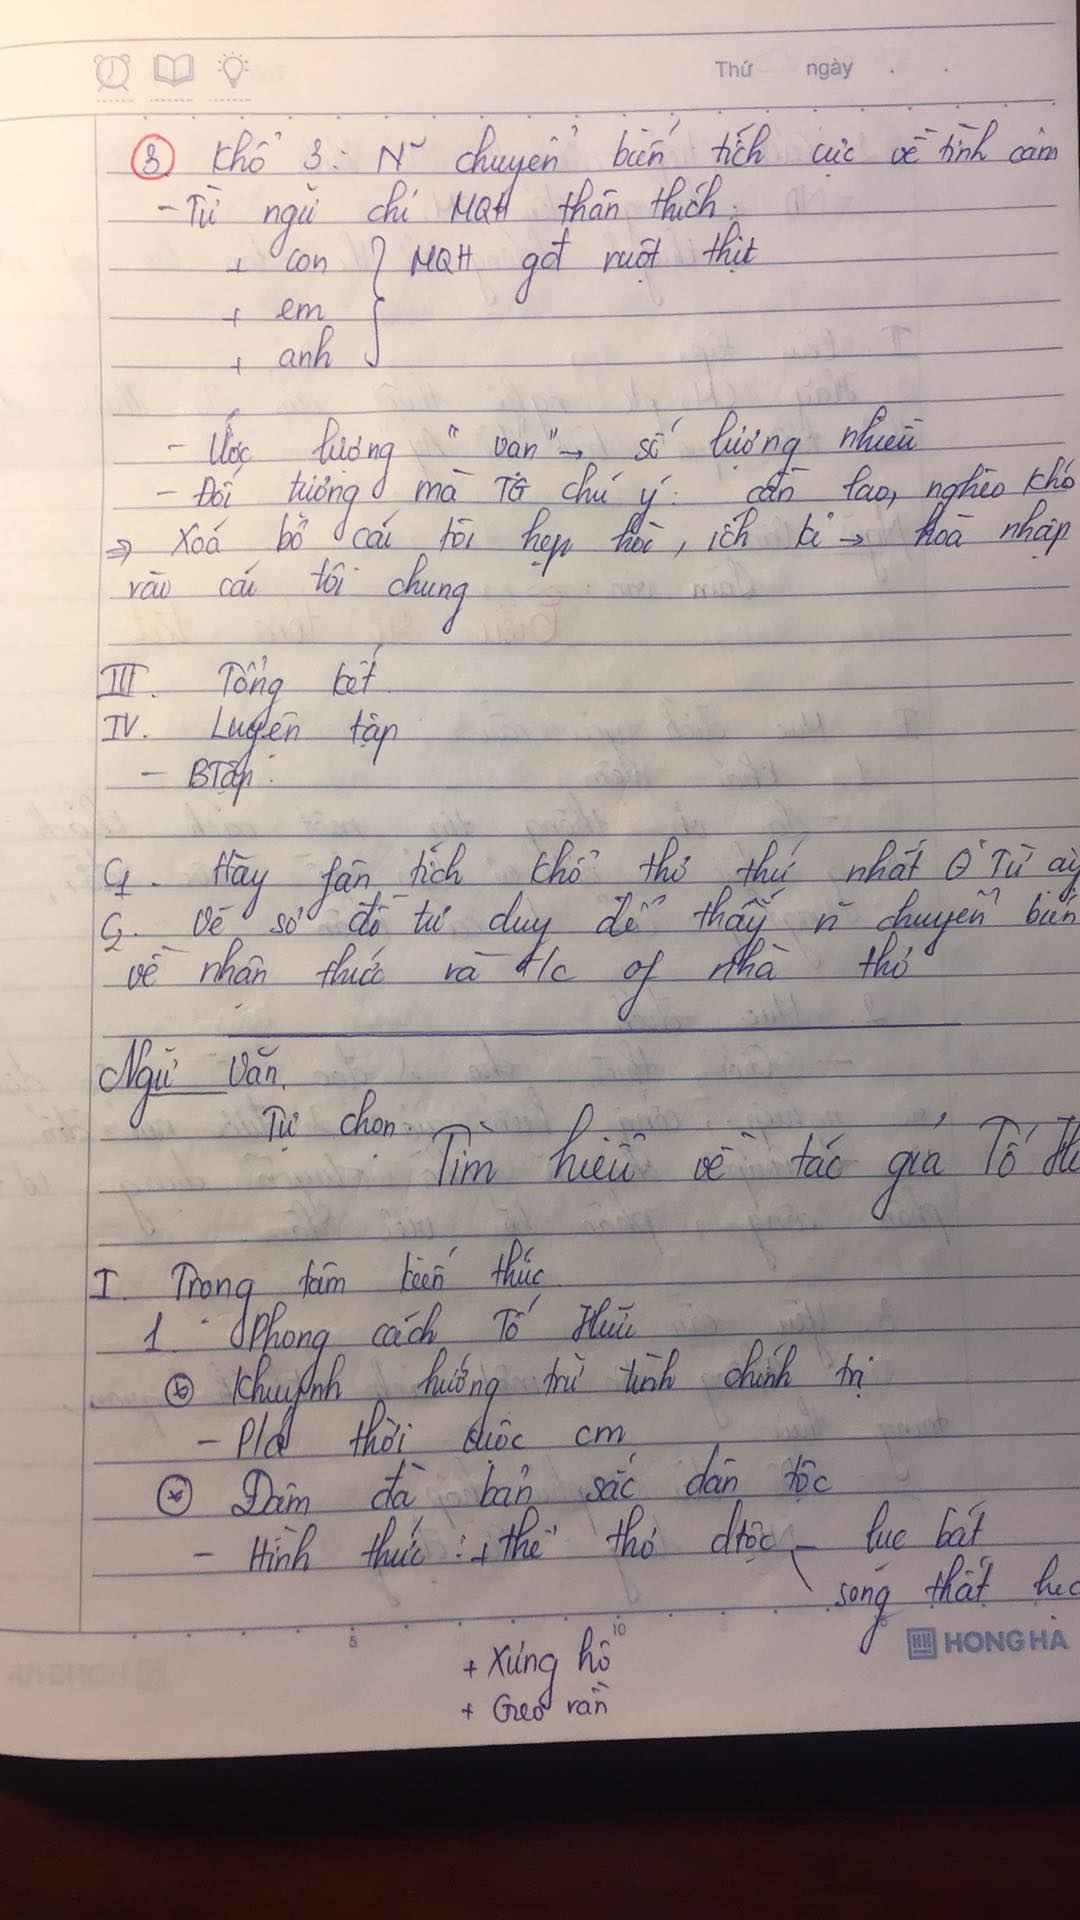 Thứ ngày . .
3 Khổ 3: N~ chuyển biến tích cực về tình cảm
- Từ ngữ chỉ MQH thân thích:
+ con } MQH gđ ruột thịt
+ em
+ anh
- Ước lượng "vạn" → số lượng nhiều
- Đối tượng mà TG chú ý: cần lao, nghèo khó
⇒ Xoá bỏ cái tôi hẹp hòi, ích kỉ → hoà nhập
vào cái tôi chung
III. Tổng kết
IV. Luyện tập
- BTập:
C1. Hãy fân tích khổ thơ thứ nhất ở Từ ấy
C2. Vẽ sơ đồ tư duy để thấy n~ chuyển biến
về nhận thức và t/c of nhà thơ
Ngữ Văn.
Tự chọn: Tìm hiểu về tác giả Tố Hữ
I. Trọng tâm kiến thức
1. Phong cách Tố Hữu
* Khuynh hướng trữ tình chính trị
- P/á thời cuộc cm
* Đậm đà bản sắc dân tộc
- Hình thức: + thể thơ dtộc - lục bát
song thất lục
HONG HA
+ Xưng hô
+ Gieo vần